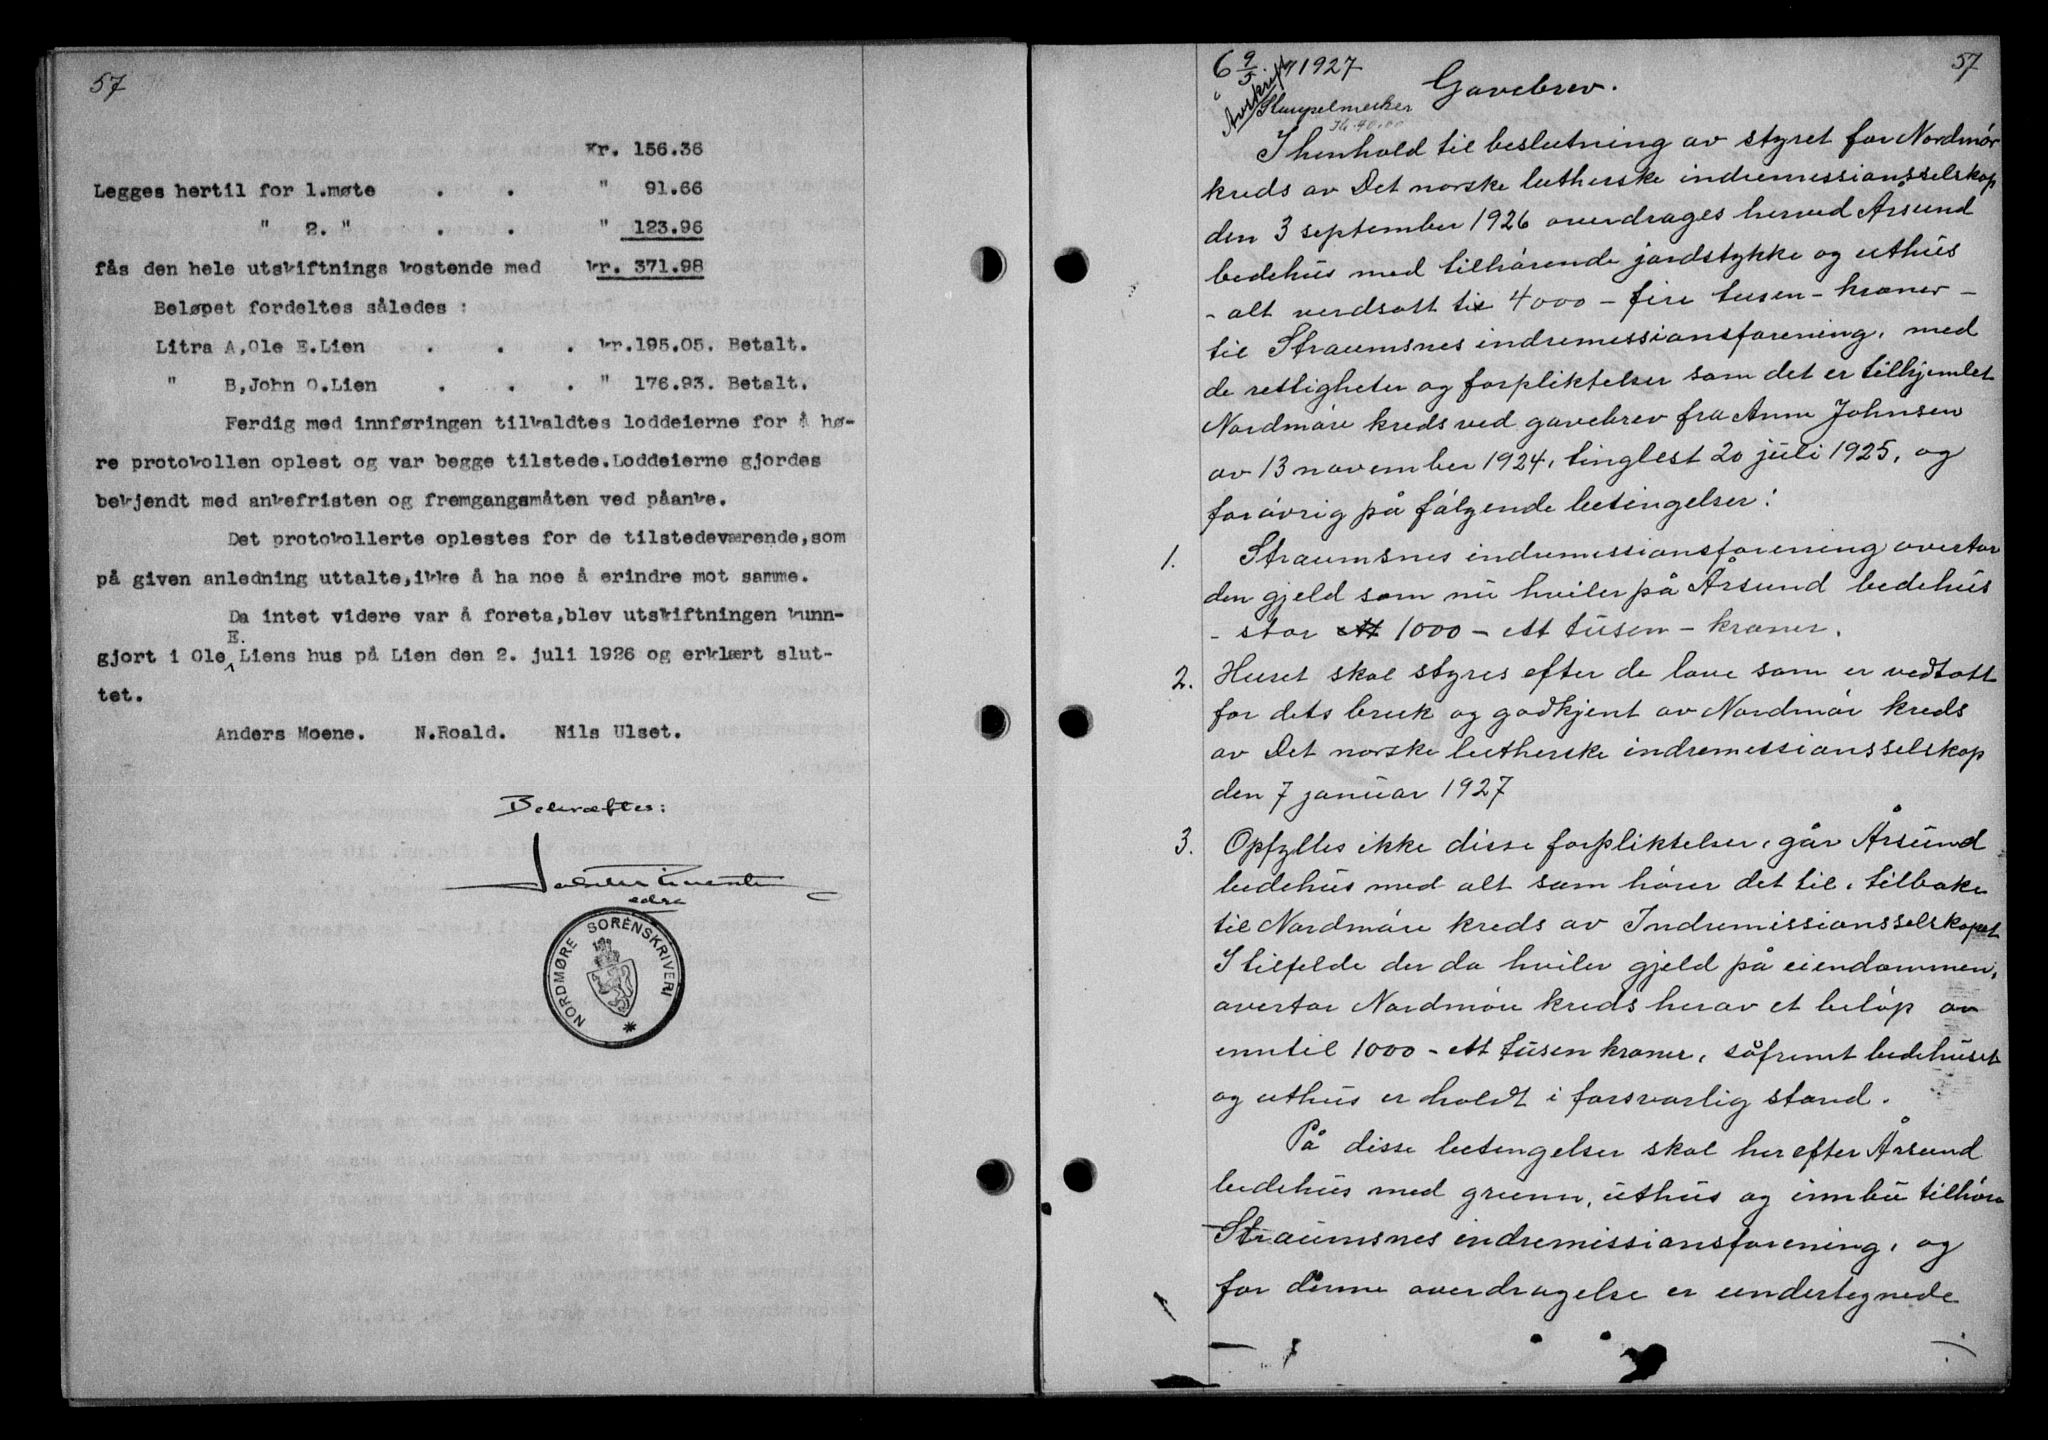 57
Kr. 156.36
Legges hertil for 1.møte . . " 91.66
" 2. " . . " 123.96
fås den hele utskiftnings kostende med kr. 371.98
Beløpet fordeltes således :
Litra A,Ole E.Lien . . . kr.195.05. Betalt.
" B,John O.Lien . . . " 176.93. Betalt.
Ferdig med innføringen tilkaldtes loddeierne for å hø-
re protokollen oplest og var begge tilstede.Loddeierne gjordes
bekjendt med ankefristen og fremgangsmåten ved påanke.
Det protokollerte oplestes for de tilstedeværende,som
på given anledning uttalte,ikke å ha noe å erindre mot samme.
Da intet videre var å foreta,blev utskiftningen kunn-
gjort i Ole E. Liens hus på Lien den 2. juli 1926 og erklært slut-
tet.
Anders Moene. N.Roald. Nils Ulset.
Bekræftes:
edra
NORDMØRE SORENSKRIVERI
57
6 9/5 1927
Avskrift
Stempelmerker
Kr. 40.00
Gavebrev.
I henhold til beslutning av styret for Nordmør
kreds av Det norske lutherske indremissionsselskap
den 3 september 1926 overdrages herved Årsund
bedehus med tilhørende jordstykke og uthus
- alt verdsatt til 4000 - fire tusen - kroner -
til Straumsnes indremissionsforening, med
de rettigheter og forpliktelser som det er tilhjemlet
Nordmøre kreds ved gavebrev fra Anne Johnsen
av 13 november 1924, tinglest 20 juli 1925, og
forøvrig på følgende betingelser:
1. Straumsnes indremissionsforening overtar
den gjeld som nu hviler på Årsund bedehus
- stor ett 1000 - ett tusen - kroner.
2. Huset skal styres efter de love som er vedtatt
for dets bruk og godkjent av Nordmør kreds
av Det norske lutherske indremissionsselskap
den 7 januar 1927
3. Opfylles ikke disse forpliktelser, går Årsund
bedehus med alt som hører det til, tilbake
til Nordmøre kreds av Indremissionsselskapet
I tilfelde der da hviler gjeld på eiendommen,
overtar Nordmøre kreds herav et beløp av
inntil 1000 - ett tusen kroner, såfremt bedehuset
og uthus er holdt i forsvarlig stand.
På disse betingelser skal her efter Årsund
bedehus med grunn, uthus og innbu tilhøre
Straumsnes indremissionsforening, og
for denne overdragelse er undertegnede